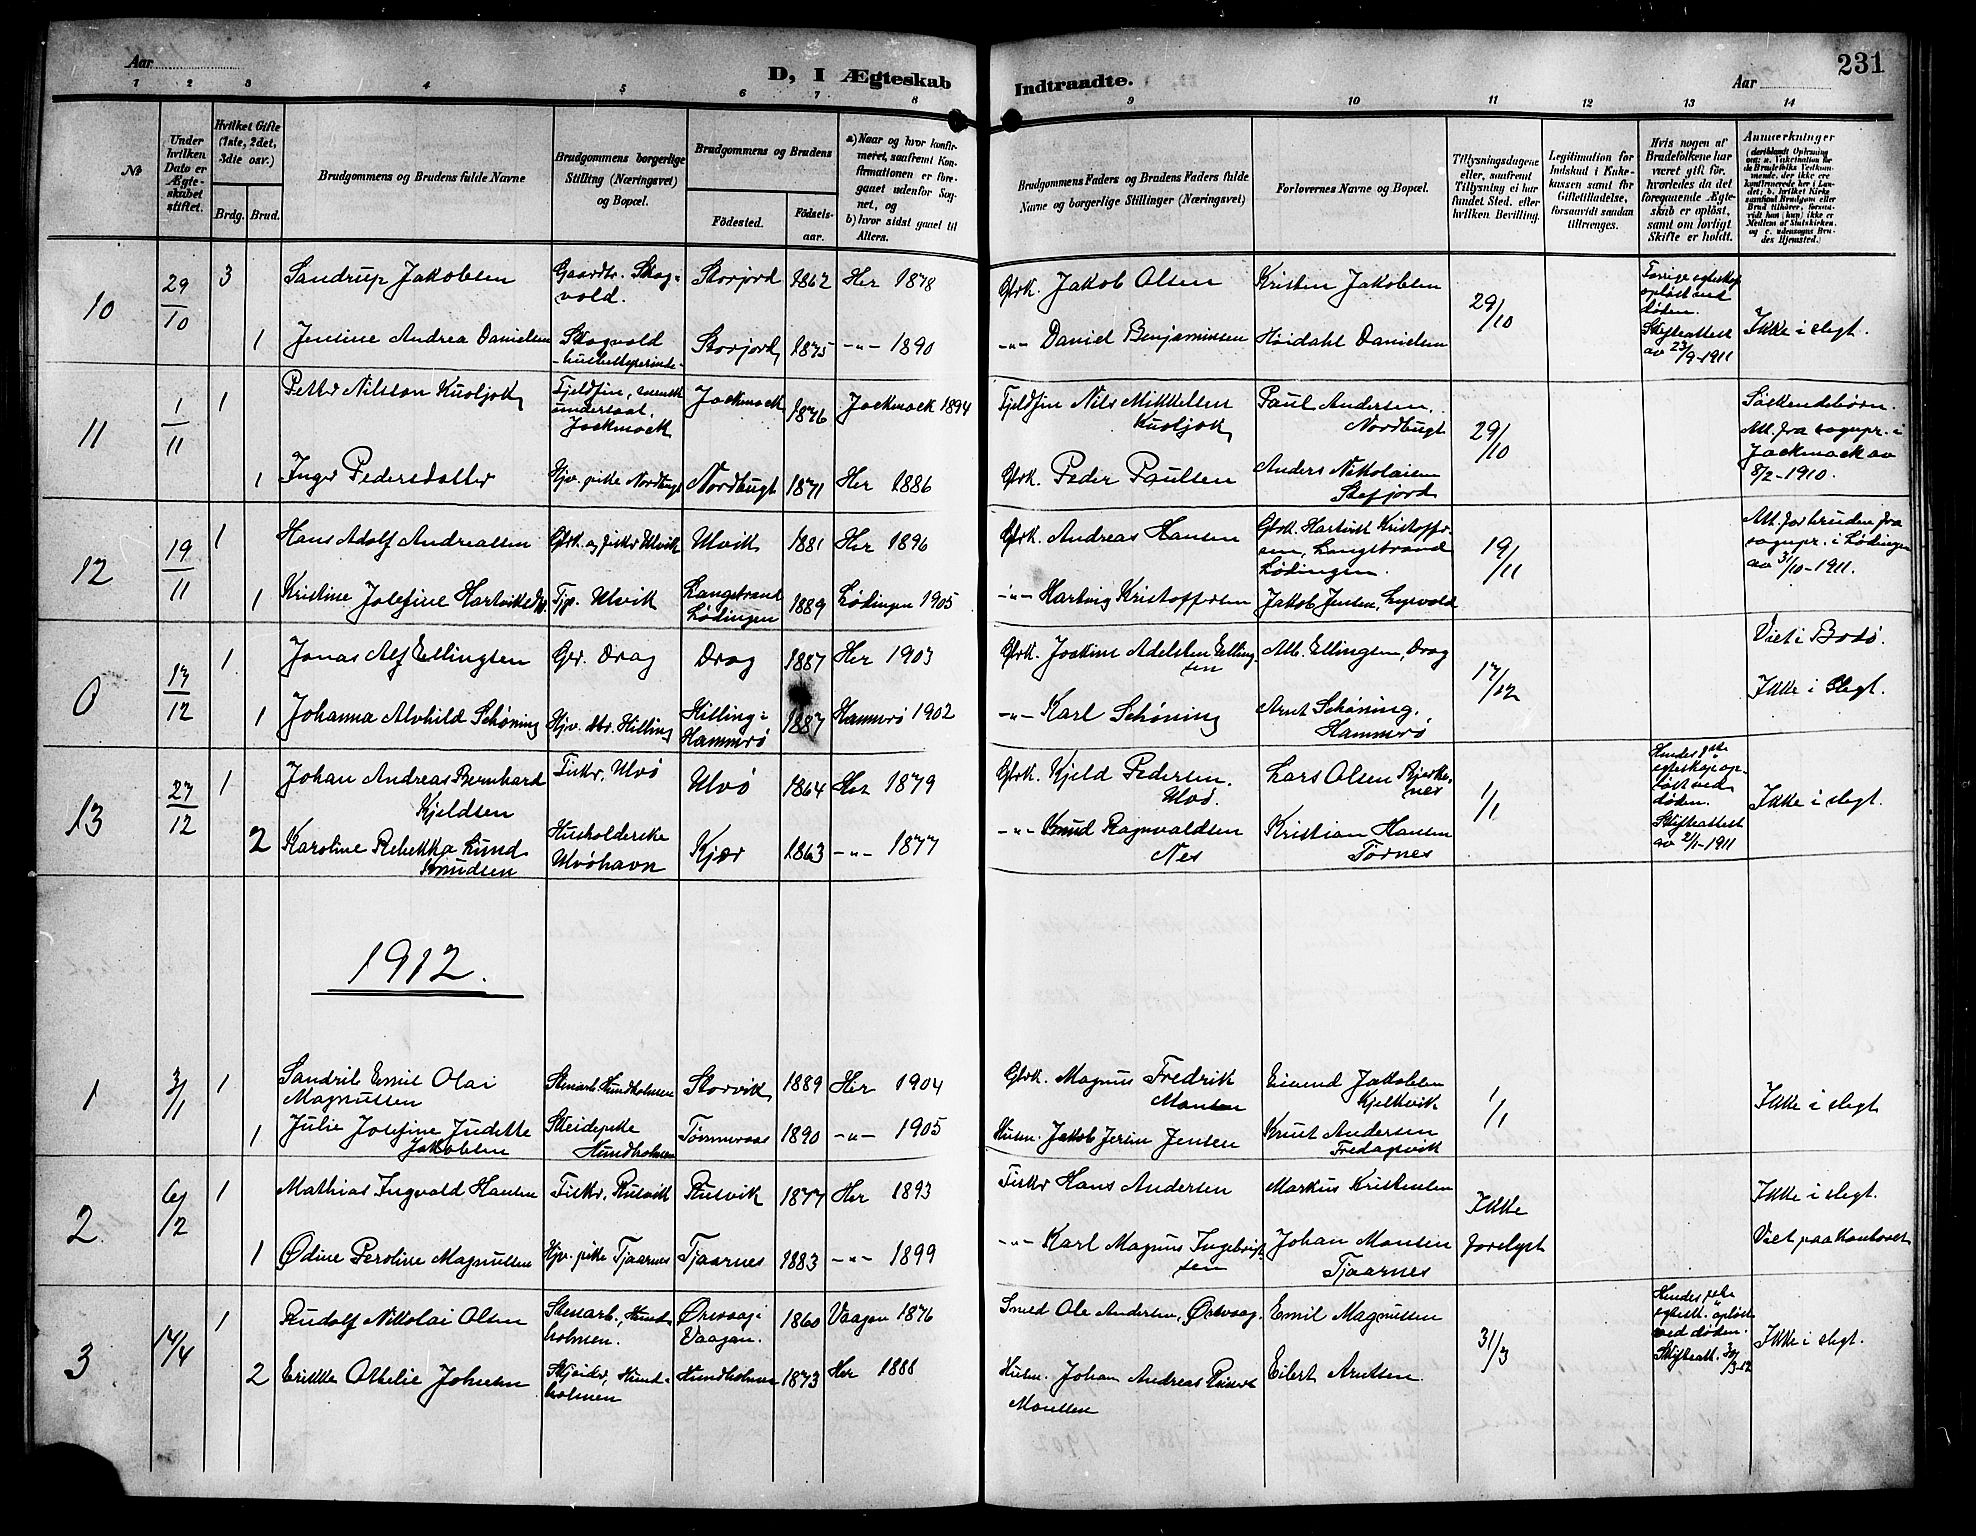 231
Aar
D, I Ægteskab
Indtraadte.
Aar
1 2 3 4 5 6 7 8 9 10 11 12 13 14
No
Under hvilken Dato er Ægteskabet stiftet.
Hvilket Gifte (1ste, 2det, 3die osv.)
Brdg. Brud.
Brudgommens og Brudens fulde Navne
Brudgommens borgerlige Stilling (Næringsvei) og Bopæl.
Brudgommens og Brudens
Fødested.
Fødselsaar.
a) Naar og hvor konfirmeret, saafremt Konfirmationen er foregaaet udenfor Sognet, og
b) hvor sidst gaaet til Alters.
Brudgommens Faders og Brudens Faders fulde Navne og borgerlige Stillinger (Næringsvei)
Forlovernes Navne og Bopæl.
Tillysningsdagene eller, saafremt Tillysning ei har fundet Sted, efter hvilken Bevilling.
Legitimation for Indskud i Enkekassen samt for Giftetilladelse, forsaavidt saadan tiltrænges.
Hvis nogen af Brudefolkene har været gift før, hvorledes da det foregaaende Ægteskab er opløst, samt om lovligt Skifte er holdt.
Anmerkninger
10 29/10 3 Sandrup Jakobsen Gaardbr. Skogvold. Storjord 1862 Her 1878 Gbrk. Jakob Olsen Kristen Jakobsen 29/10 Forrige egteskap opløst ved døden. Skifteattest av 23/9-1911 Ikke i slegt.
1 Jensine Andrea Danielsen Skogvold Storjord 1875 -"- 1890 -"- Daniel Benjaminsen Høidahl Danielsen
11 1/11 1 Petter Nilsson Kuoljok Fjeldfin, svensk undersaat. Jockmock Jockmock 1876 Jockmock 1894 Fjeldfin Nils Mikkelsen Kuoljok Paul Andersen, Nordbugt 29/10 Søskendebørn. Att. fra sognepr. i Jockmock av 8/2-1910.
1 Inger Pedersdatter Hjv. pike Nordbugt Nordbugt 1871 Her 1886 Gbrk. Peder Paulsen Anders Nikolaisen Stefjord
12 19/11 1 Hans Adolf Andreassen Gbrk. og fisker Ulvik Ulvik 1881 Her 1896 Gbrk. Andreas Hansen Gbrk. Hartvik Kristoffersen, Langstrand Lødingen. 19/11 Att. for bruden fra sognepr. i Lødingen av 31/10-1911.
1 Kristine Josefine Hartviksen Tjp. Ulvik Langstrand Lødingen 1889 Lødingen 1905 -"- Hartvig Kristoffersen Jakob Jensen, Lyrvold
0 17/12 1 Jonas Alf Ellingsen Gbr. Drag Drag 1887 Her 1903 Gbrk. Joakim Adelsten Ellingsen Alb. Ellingsen, Drag 17/12 Viet i Bodø.
1 Johanna Alvhild Schøning Hjv. dtr. Hilling Hilling: Hammerø 1887 Hammerø 1902 -"- Karl Schøning Arnt Schøning, Hammerø Ikke i slegt.
13 27/12 1 Johan Andreas Bernhard Kjeldsen Fisker, Ulvø Ulvø 1864 Her 1879 Gbrk. Kjeld Pedersen, Ulvø. Lars Olsen Bjerkenes 1/1 Hendes 1ste egteskap opløst ved døden. Skifteattest av 2/1-1911 Ikke i slegt.
2 Karoline Rebekka Lund Knudsen Husholderske Ulvøhavn Kjær 1863 -"- 1877 -"- Knud Ragnvaldsen Nes Kristian Hansen Tørnes
1912.
1 3/1 1 Sandrik Emil Olai Magnussen Stenarb. Hundholmen Storvik 1889 Her 1904 Gbrk. Magnus Fredrik Monsen Eivind Jakobsen Kjelkvik 1/1 Ikke i slegt
1 Julie Josefine Judette Jakobsen Skeidepike Hundholmen Tømmeraas 1890 -"- 1905 Husm. Jakob Jerim Jensen Knut Andersen Fredagsvik
2 6/2 1 Mathias Ingvald Hansen Fisker, Rusvik Rusvik 1877 Her 1893 Fisker Hans Andersen Markus Kristensen Ikke forelyst Ikke i slegt.
1 Ødine Peroline Magnussen Hjv. pike Tjaarnes Tjaarnes 1883 -"- 1899 -"- Karl Magnus Ingebrigtsen Johan Monsen Tjaarnes Viet paa kontoret
3 14/4 1 Rudolf Nikolai Olsen Stenarb., Hundholmen. Ørsvaag i Vaagan. 1860 Vaagan 1876 Smed Ole Andersen, Ørsvaag. Emil Magnussen 31/3 Hendes 1ste egtesk. opløst ved døden. Skifteatt. Ikke i slegt.
2 Erikka Othelie Johnsen Hundholmen Hundholmen 1873 Her 1888 Husm. Johan Andreas Monssen Eilert Arntsen.